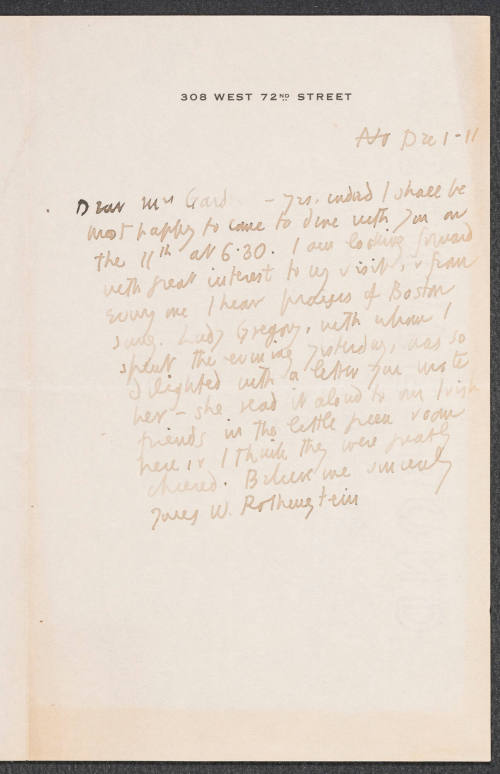 308 WEST 72ND STREET
No Dec 1 - 11
Dear Mrs Gard - yes, indeed I shall be
most happy to come to dine with you on
the 11th at 6.30. I am looking forward
with great interest to my visit, & from
every one I hear praises of Boston
sung. Lady Gregory, with whom I
spent the evening yesterday, was so
delighted with a letter you wrote
her - she read it aloud to our Irish
friends in the little green room
here, & I think they were greatly
cheered. Believe me sincerely
Yours W. Rothenstein